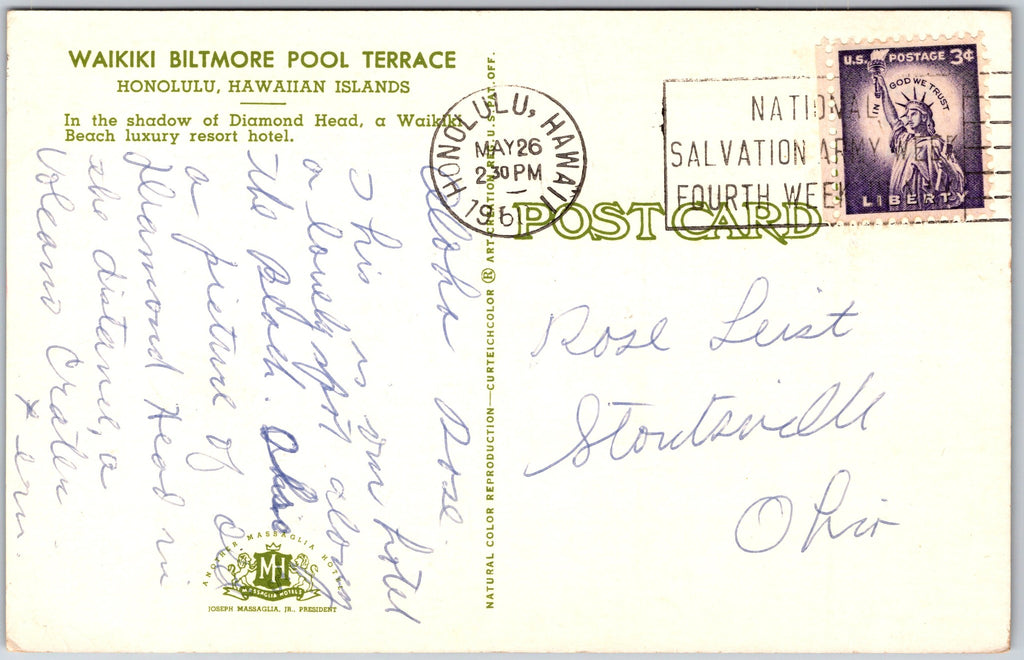 WAIKIKI BILTMORE POOL TERRACE
HONOLULU, HAWAIIAN ISLANDS
In the shadow of Diamond Head, a Waikiki
Beach luxury resort hotel.
Aloha Rose.
This is our hotel
a lovely spot along
the Beach. Also
a picture of Old
Diamond Head in
the distance, a
Volcano Crater
ANOTHER MASSAGLIA HOTEL
MH
MASSAGLIA HOTELS
JOSEPH MASSAGLIA, JR., PRESIDENT
NATURAL COLOR REPRODUCTION—CURTEICHCOLOR ® ART-CREATION REG. U.S. PAT. OFF.
HONOLULU, HAWAII
MAY 26
2 30 PM
NATIONAL
SALVATION ARMY
FOURTH WEEK
U.S. POSTAGE 3¢
IN GOD WE TRUST
LIBERTY
POST CARD
Rose Leist
Stoutsville
Ohio